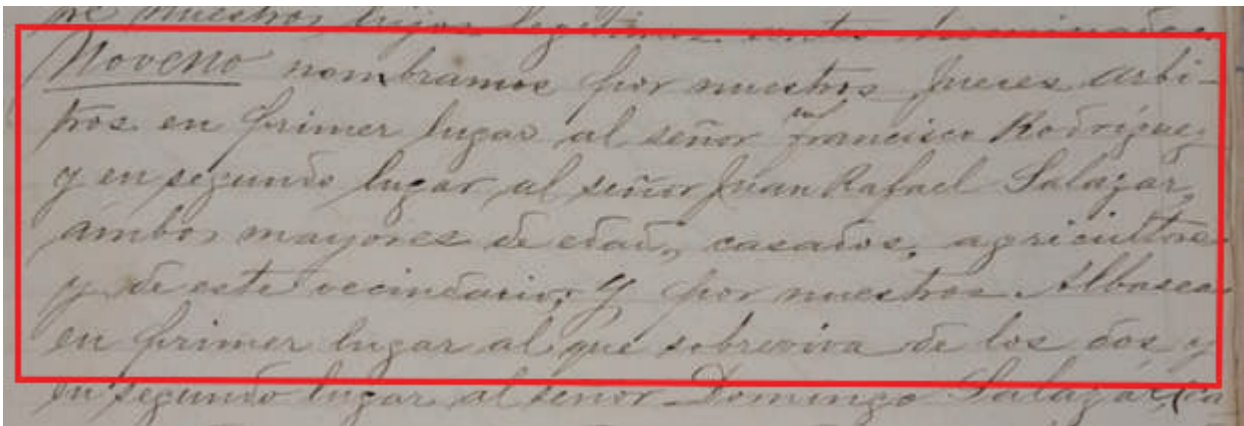 de nuestros hijos legítimos antes nominados.
Noveno nombramos por nuestros Jueces Arbi-
tros en primer lugar al señor Francisco Rodríguez
y en segundo lugar al señor Juan Rafael Salazar,
ambos mayores de edad, casados, agricultores
y de este vecindario; Y por nuestros Albaceas
en primer lugar al que sobreviva de los dos y
en segundo lugar al señor Domingo Salazar, ca